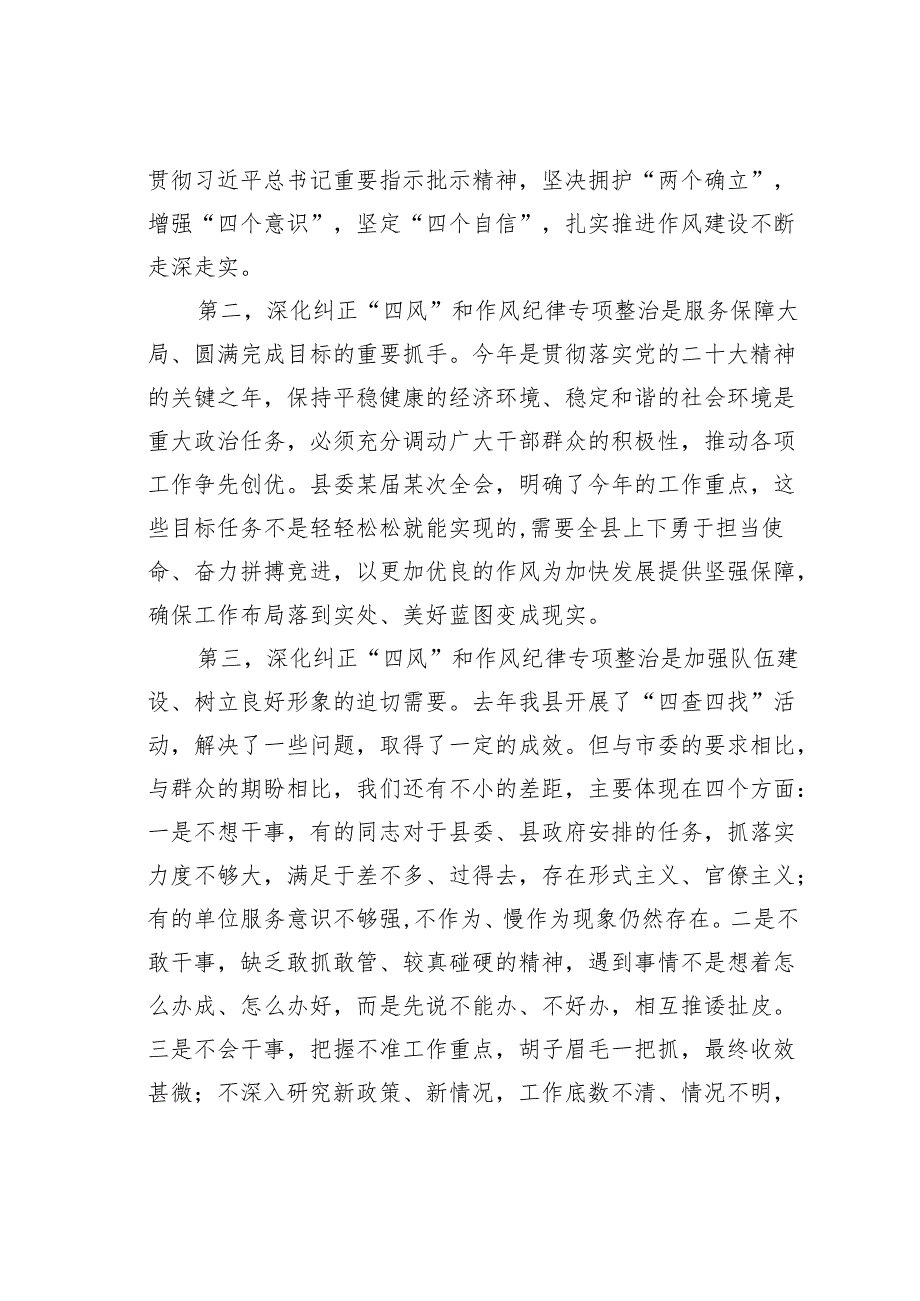 贯彻习近平总书记重要指示批示精神，坚决拥护“两个确立”，
增强“四个意识”，坚定“四个自信”，扎实推进作风建设不断
走深走实。
第二，深化纠正“四风”和作风纪律专项整治是服务保障大
局、圆满完成目标的重要抓手。今年是贯彻落实党的二十大精神
的关键之年，保持平稳健康的经济环境、稳定和谐的社会环境是
重大政治任务，必须充分调动广大干部群众的积极性，推动各项
工作争先创优。县委某届某次全会，明确了今年的工作重点，这
些目标任务不是轻轻松松就能实现的,需要全县上下勇于担当使
命、奋力拼搏竞进，以更加优良的作风为加快发展提供坚强保障，
确保工作布局落到实处、美好蓝图变成现实。
第三，深化纠正“四风”和作风纪律专项整治是加强队伍建
设、树立良好形象的迫切需要。去年我县开展了“四查四找”活
动，解决了一些问题，取得了一定的成效。但与市委的要求相比，
与群众的期盼相比，我们还有不小的差距，主要体现在四个方面：
一是不想干事，有的同志对于县委、县政府安排的任务，抓落实
力度不够大，满足于差不多、过得去，存在形式主义、官僚主义；
有的单位服务意识不够强,不作为、慢作为现象仍然存在。二是不
敢干事，缺乏敢抓敢管、较真碰硬的精神，遇到事情不是想着怎
么办成、怎么办好，而是先说不能办、不好办，相互推诿扯皮。
三是不会干事，把握不准工作重点，胡子眉毛一把抓，最终收效
甚微；不深入研究新政策、新情况，工作底数不清、情况不明，